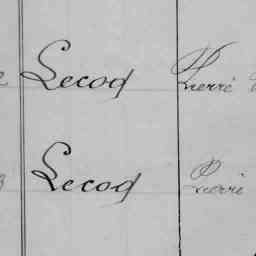 Lecoq Pierre
Lecoq Pierre